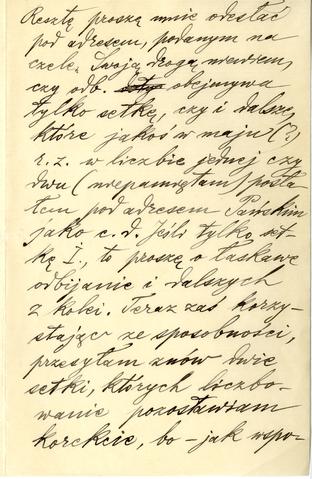 Resztę proszę mnie odesłać
pod adresem, podanym na
czele. Swoją drogą niewiem,
czy odb. obejmywa
tylko setkę, czy i dalsze,
które jakoś w maju (?)
r. z. w liczbie jednej czy
dwu (niepamiętam) posła-
łem pod adresem Pańskim
jako c. d. Jeśli tylko set-
kę I., to proszę o łaskawe
odbijanie i dalszych
z kolei. Teraz zaś korzy-
stając ze sposobności,
przesyłam znów dwie
setki, których liczbo-
wanie pozostawiam
korekcie, bo – jak wspo-